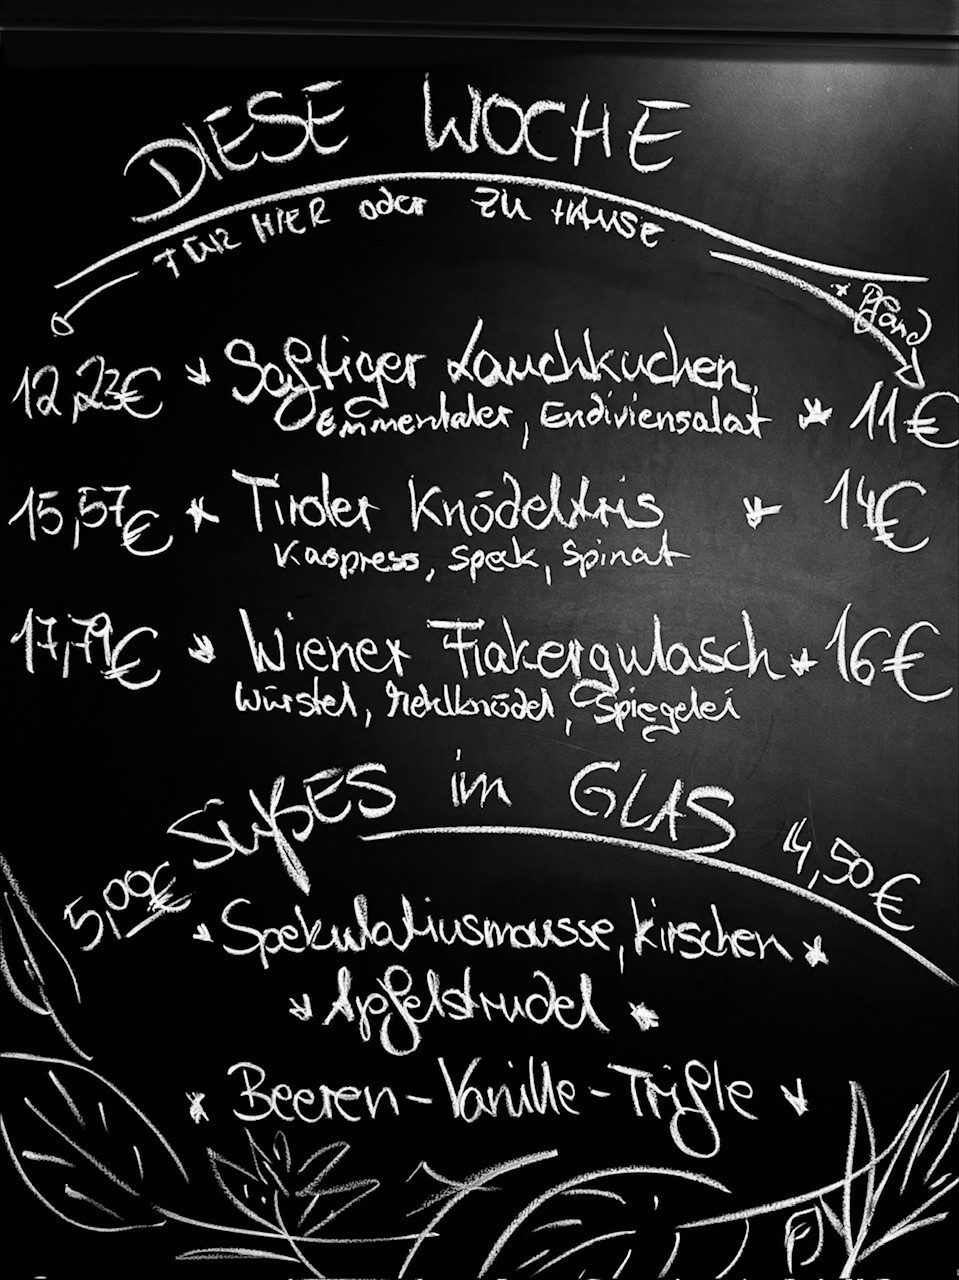 DIESE WOCHE
FÜR HIER oder ZU HAUSE
+ Pfand
12,23€ * Saftiger Lauchkuchen, * 11€
Emmentaler, Endiviensalat
15,57€ * Tiroler Knödeltris * 14€
Kaspress, Speck, Spinat
17,79€ * Wiener Fiakergulasch * 16€
Würstel, Mehlknödel, Spiegelei
SÜßES im GLAS
5,00€ 4,50€
* Spekulatiusmousse, Kirschen *
* Apfelstrudel *
* Beeren-Vanille-Trifle *